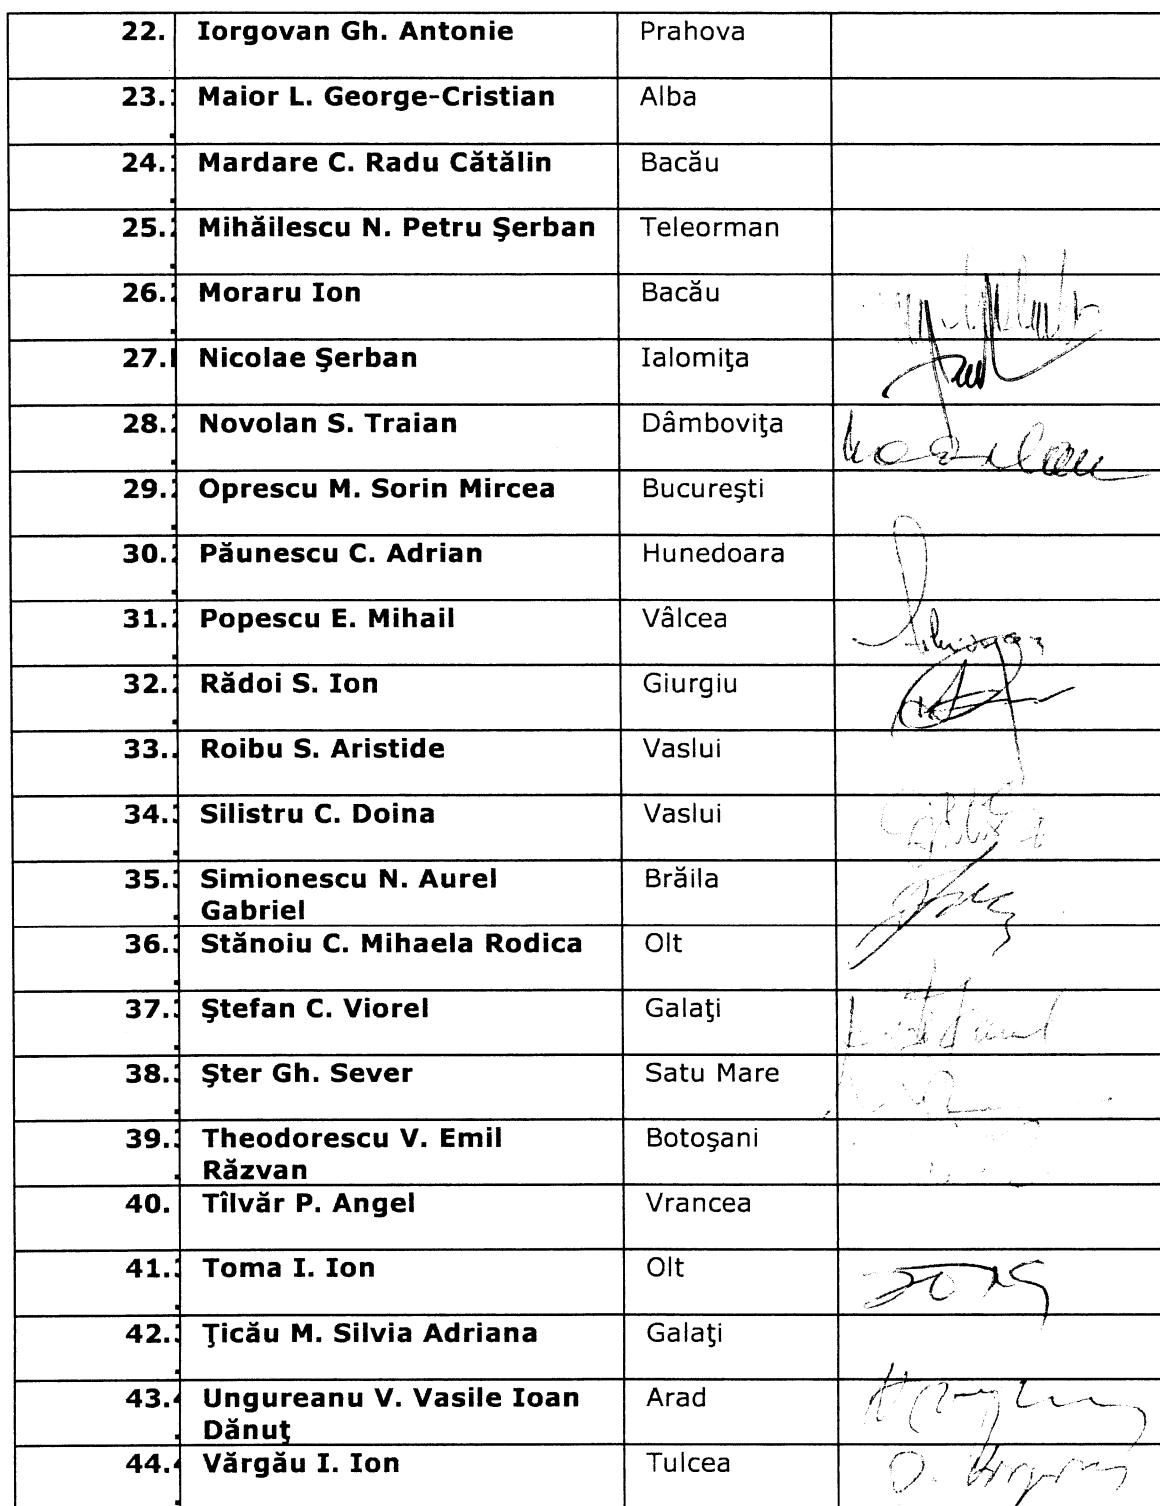 22. Iorgovan Gh. Antonie Prahova
23. Maior L. George-Cristian Alba
24. Mardare C. Radu Cătălin Bacău
25. Mihăilescu N. Petru Şerban Teleorman
26. Moraru Ion Bacău
27. Nicolae Şerban Ialomiţa
28. Novolan S. Traian Dâmboviţa
29. Oprescu M. Sorin Mircea Bucureşti
30. Păunescu C. Adrian Hunedoara
31. Popescu E. Mihail Vâlcea
32. Rădoi S. Ion Giurgiu
33. Roibu S. Aristide Vaslui
34. Silistru C. Doina Vaslui
35. Simionescu N. Aurel Brăila
Gabriel
36. Stănoiu C. Mihaela Rodica Olt
37. Ştefan C. Viorel Galaţi
38. Şter Gh. Sever Satu Mare
39. Theodorescu V. Emil Botoşani
Răzvan
40. Tîlvăr P. Angel Vrancea
41. Toma I. Ion Olt
42. Ţicău M. Silvia Adriana Galaţi
43. Ungureanu V. Vasile Ioan Arad
Dănuţ
44. Vărgău I. Ion Tulcea